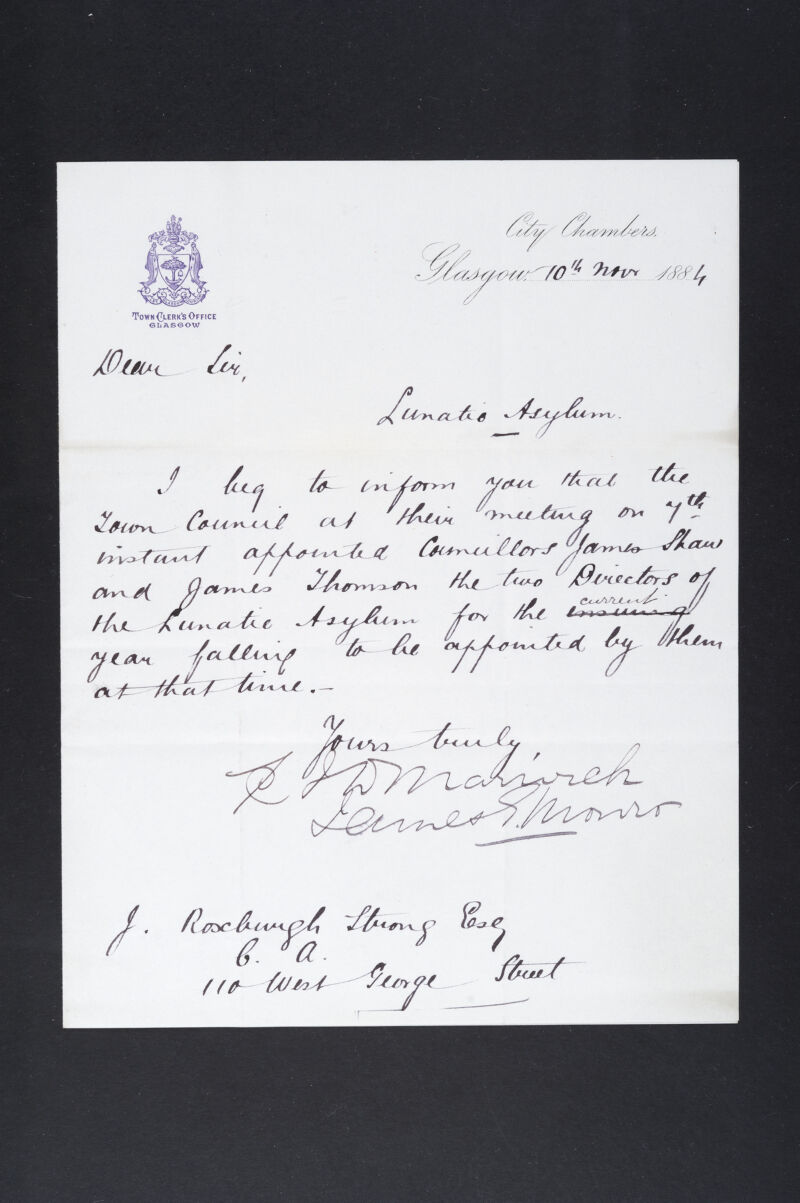 City Chambers.
Glasgow. 10th Novr 1884
TOWN CLERK'S OFFICE
GLASGOW
Dear Sir,
Lunatic Asylum.
I beg to inform you that the
Town Council at their meeting on 7th
instant appointed Councillors James Shaw
and James Thomson the two Directors of
the Lunatic Asylum for the ensuing current
year falling to be appointed by them
at that time.—
Yours truly,
J D Marwick
James Monro
J. Roxburgh Strong Esq
C. A.
110 West George Street